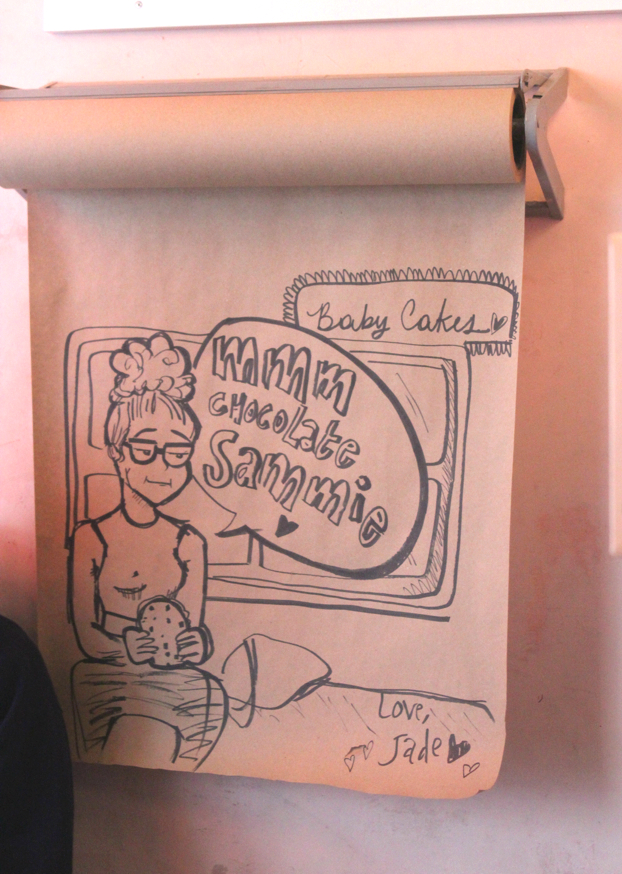 Baby Cakes
mmm
CHOCOLaTe
Sammie
Love,
Jade